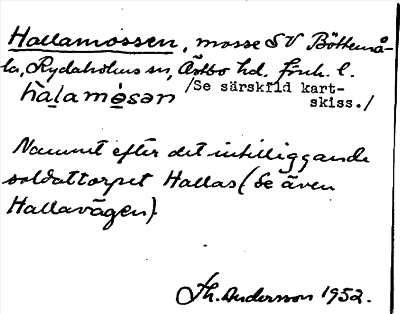 Hallamossen, mosse SV Böttemå-
la, Rydaholms sn, Östbo hd, Jönk. l.
/Se särskild kart-
skiss./
Namnet efter det intilliggande
soldattorpet Hallas (Se även
Hallavägen).
Th. Andersson 1952.